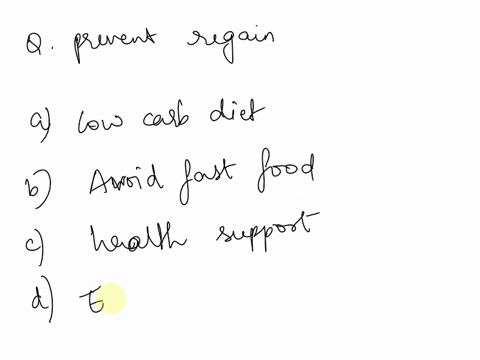 Q. prevent regain
a) low carb diet
b) Avoid fast food
c) health support
d) E